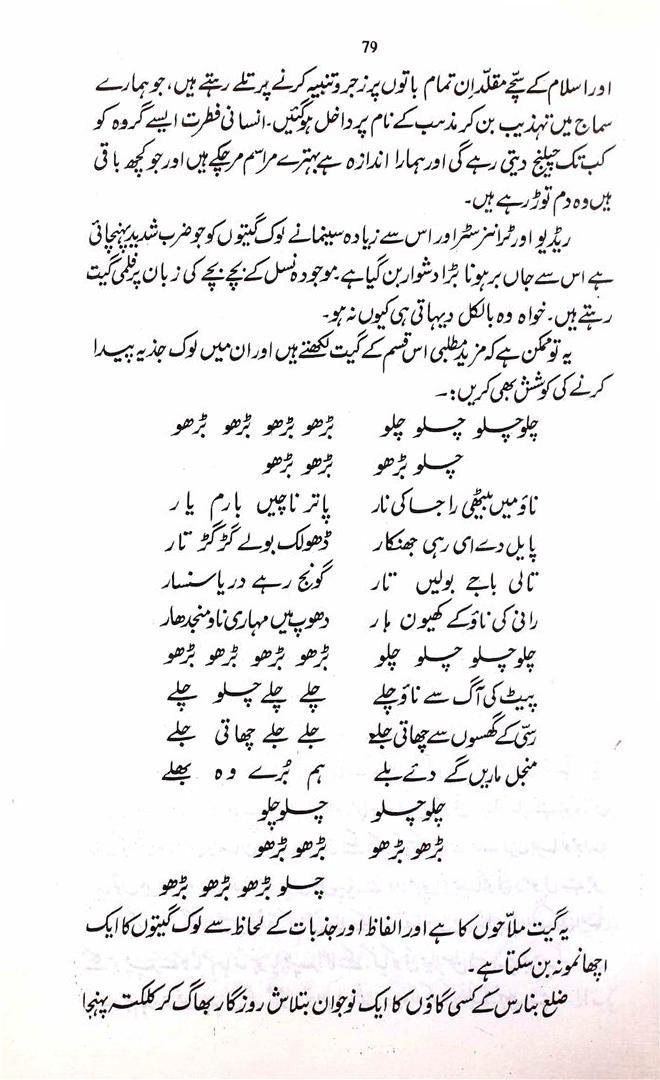 79
اور اسلام کے سچّے مقلّد اِن تمام باتوں پر زجر و تنبیہ کرنے پر تلے رہتے ہیں، جو ہمارے
سماج میں تہذیب بن کر مذہب کے نام پر داخل ہوگئیں۔ انسانی فطرت ایسے گروہ کو
کب تک چیلنج دیتی رہے گی اور ہمارا اندازہ ہے بہتیرے مراسم مر چکے ہیں اور جو کچھ باقی
ہیں وہ دم توڑ رہے ہیں۔
ریڈیو اور ٹرانزسٹر اور اس سے زیادہ سینما نے لوک گیتوں کو جو ضرب شدید پہنچائی
ہے اس سے جاں بر ہونا بڑا دشوار بن گیا ہے۔ موجودہ نسل کے بچے بچے کی زبان پر فلمی گیت
رہتے ہیں۔ خواہ وہ بالکل دیہاتی ہی کیوں نہ ہو۔
یہ تو ممکن ہے کہ مزید مطلبی اس قسم کے گیت لکھتے ہیں اور ان میں لوک جذبہ پیدا
کرنے کی کوشش بھی کریں:۔
چلو چلو چلو چلو بڑھو بڑھو بڑھو بڑھو
چلو بڑھو بڑھو بڑھو
ناؤ میں بیٹھی راجا کی نار پاتر ناچیں بارم یار
پایل دے ای رہی جھنکار ڈھولک بولے گڑ گڑ تار
تالی باجے بولیں تار گونج رہے دریا سنسار
رانی کی ناؤ کے کھیون ہار دھوپ میں مہاری ناو منجدھار
چلو چلو چلو چلو بڑھو بڑھو بڑھو بڑھو
پیٹ کی آگ سے ناؤ چلے چلے چلے چلو چلے
رسّی کے گھسوں سے چھاتی جلے جلے جلے چھاتی جلے
منجل ماریں گے دئے بلے ہم بُرے وہ بھلے
چلو چلو چلو چلو
بڑھو بڑھو بڑھو بڑھو
چلو بڑھو بڑھو بڑھو
یہ گیت ملاّحوں کا ہے اور الفاظ اور جذبات کے لحاظ سے لوک گیتوں کا ایک
اچھا نمونہ بن سکتا ہے۔
ضلع بنارس کے کسی گاؤں کا ایک نوجوان بتلاش روزگار بھاگ کر کلکتہ پہنچا